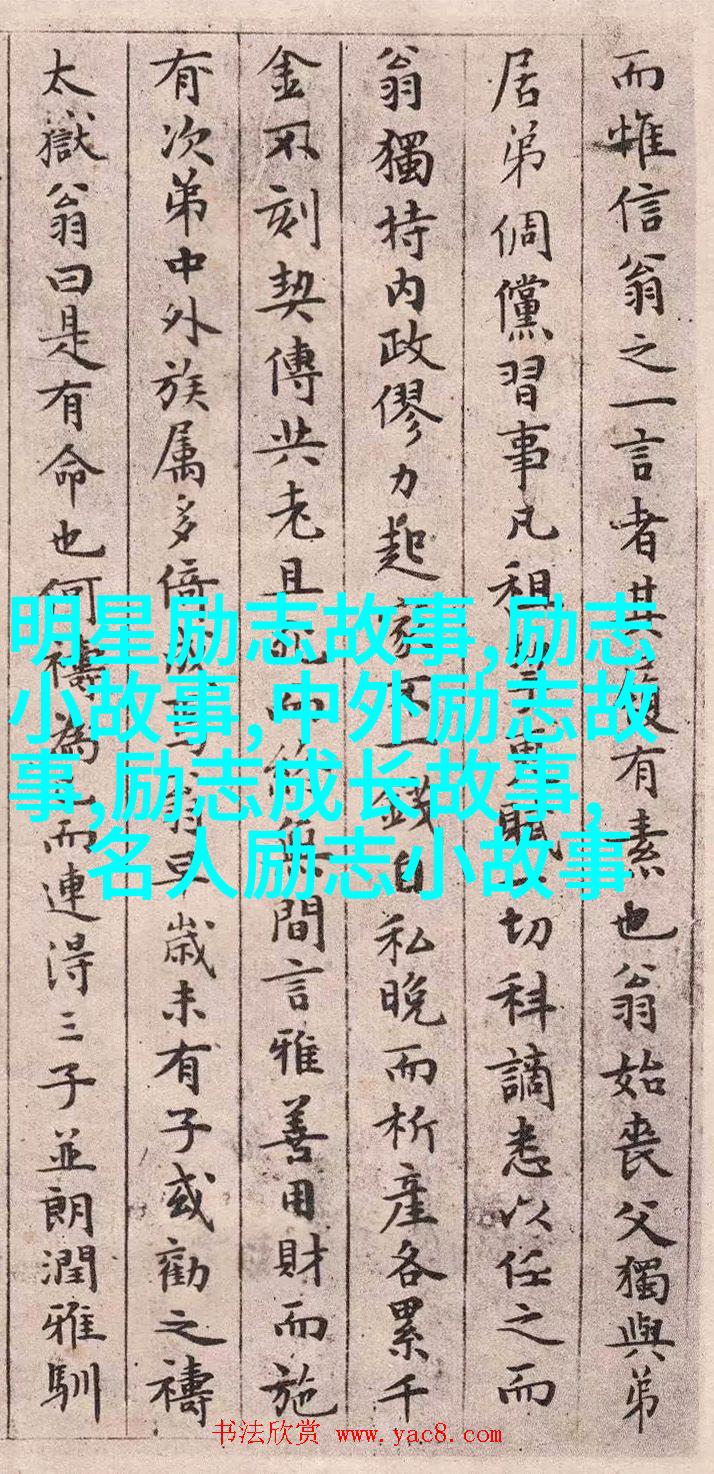 而惟信翁之一言者其有素也翁始喪父獨與弟
居弟倜儻習事凡租切科謫悉以任之而
翁獨持内政僇力起一錢自私晚而析產各累千
金不刻契傳其老且間言雅善用財而施
有次弟中外族属多倚早歲未有子或勸之禱
太嶽翁曰是有命也何禱為而連得三子並朗潤雅馴
明星励志故事,励志
小故事,中外励志故
事,励志成长故事,
名人励志小故事
书法欣赏 www.yac8.com